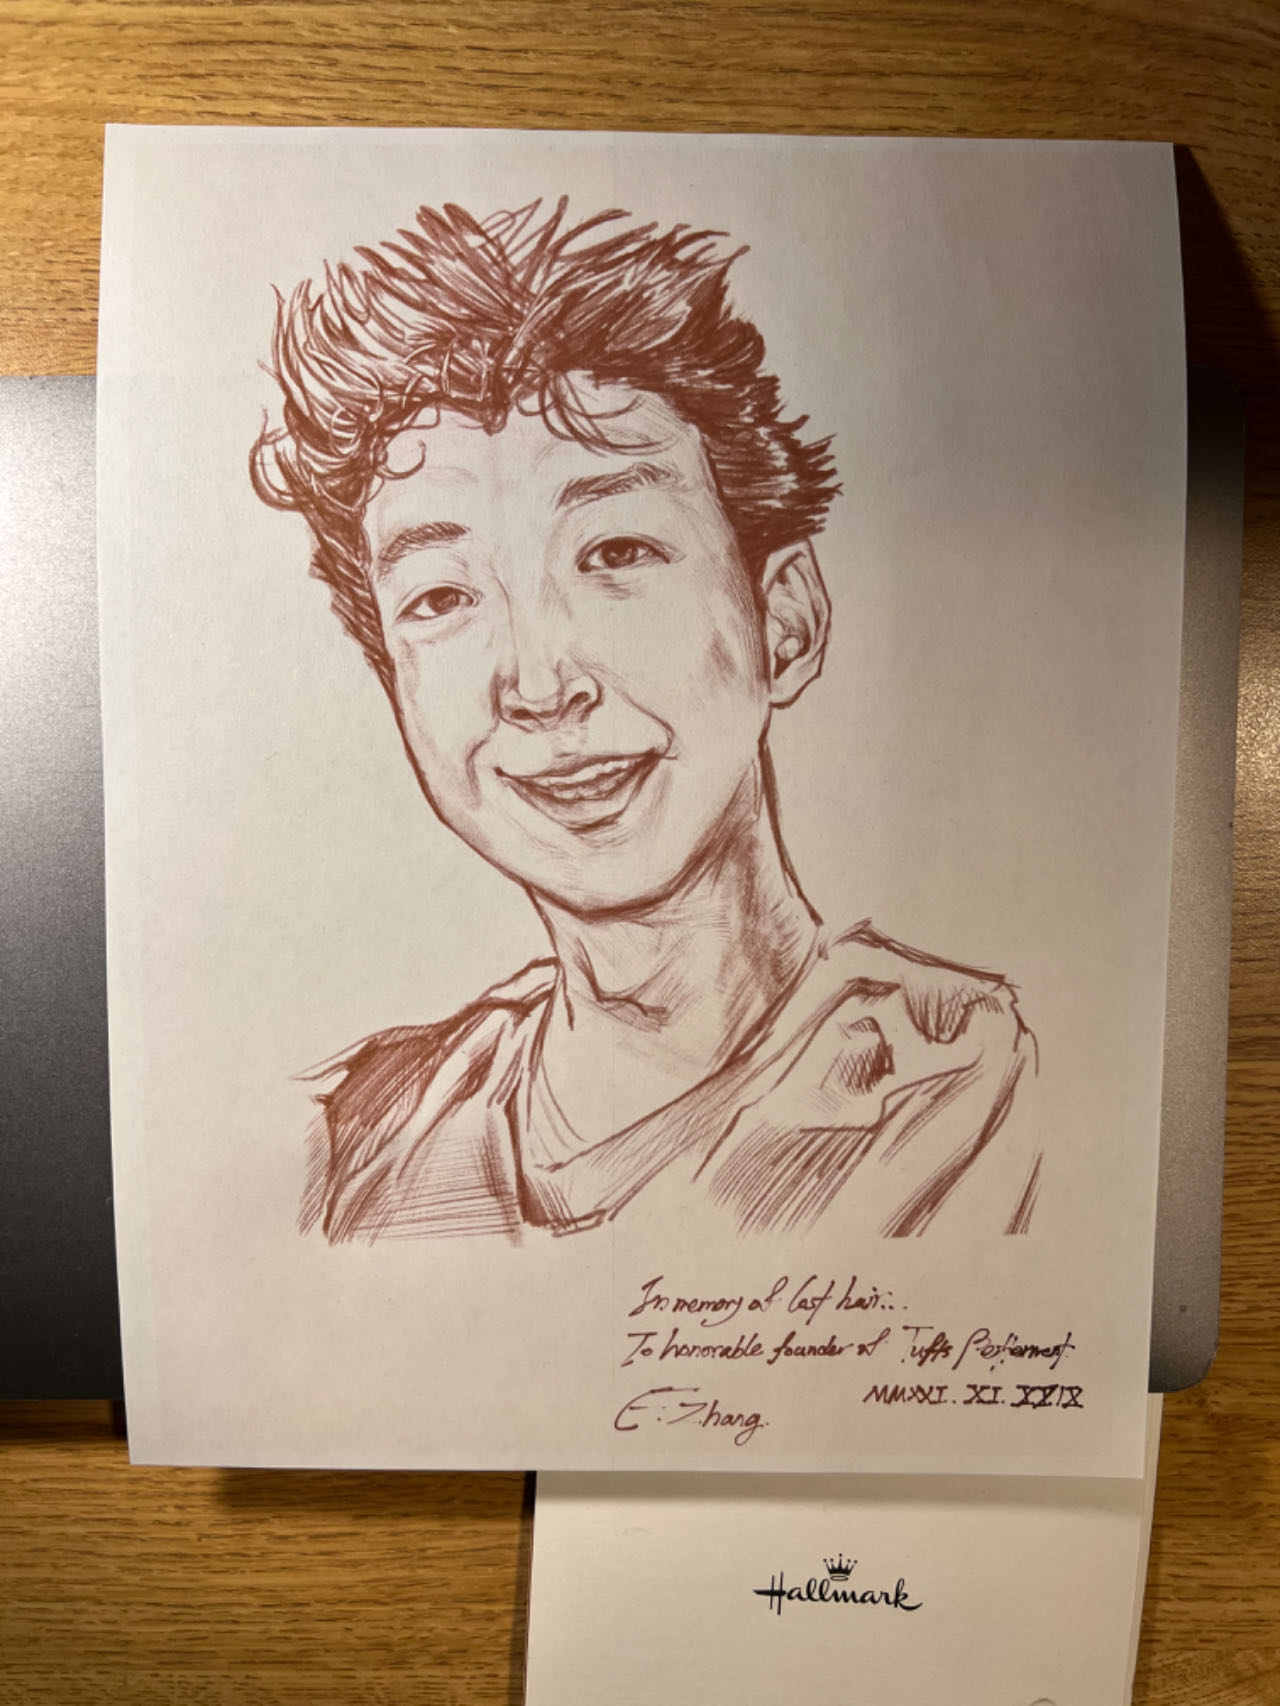 In memory of lost hair...
To honorable founder of Tufts
MMXXI. XI. XXIX
E. Zhang.
Hallmark